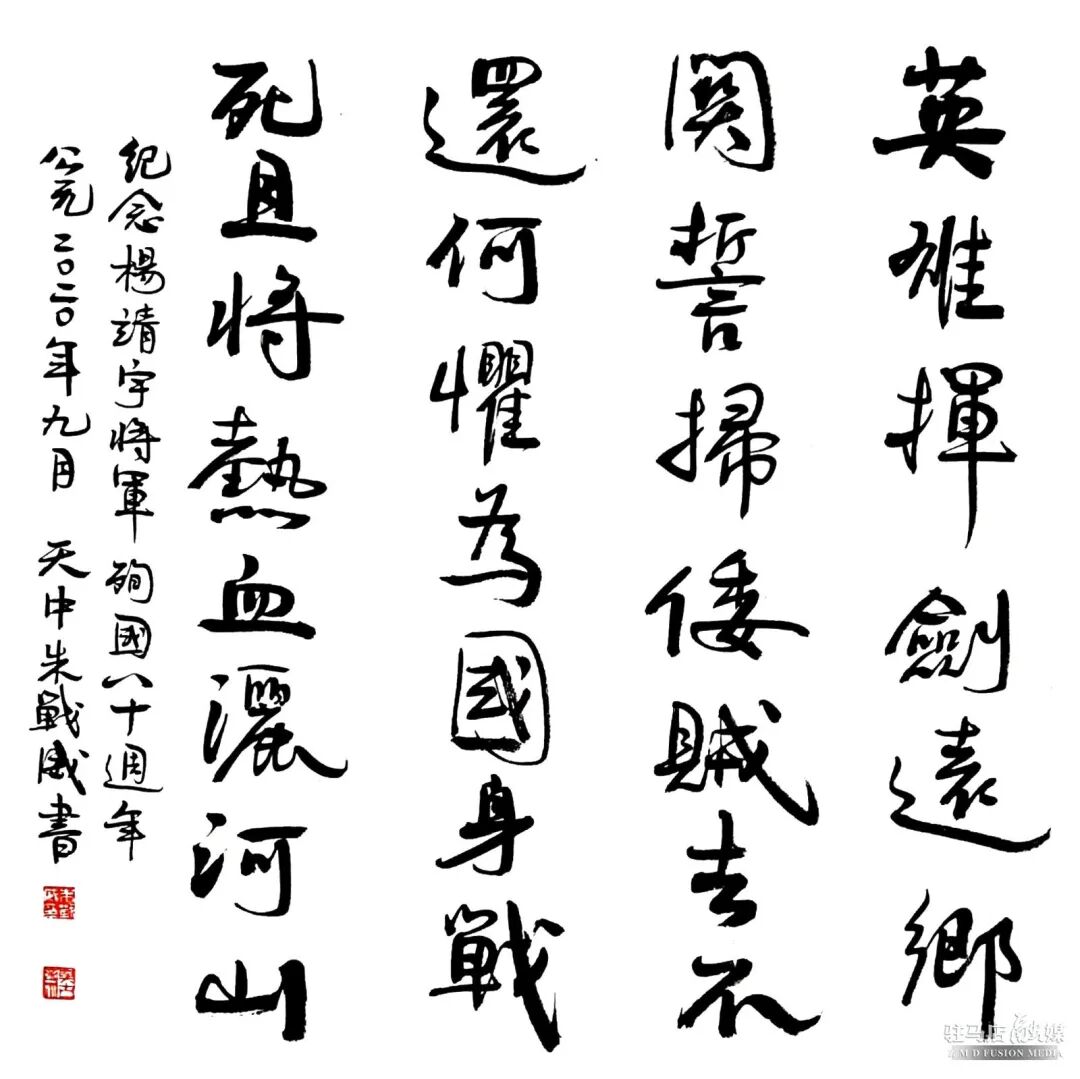 英雄揮劍遠鄉
関誓掃倭賊去不
還何懼為國身戰
死且將熱血灑河山
紀念楊靖宇将軍殉國八十週年
公元二〇二〇年九月 天中朱戰威書
驻马店融媒
Z M D FUSION MEDIA